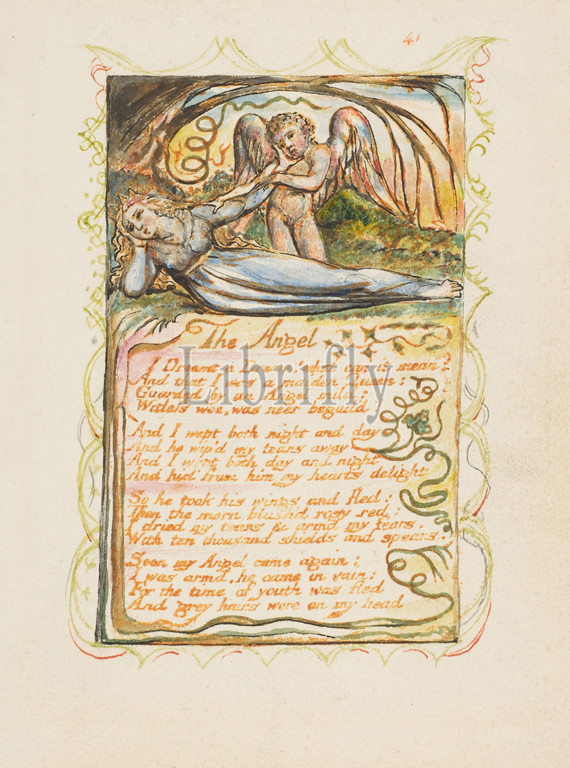 41
The Angel
I Dreamt a Dream! what can it mean?
And that I was a maiden Queen:
Guarded by an Angel mild:
Witless woe, was neer beguild
And I wept both night and day
And he wip'd my tears away
And I wept both day and night
And hid from him my hearts delight
So he took his wings and fled:
Then the morn blush'd rosy red:
I dried my tears & armd my fears,
With ten thousand shields and spears.
Soon my Angel came again:
I was arm'd, he came in vain:
For the time of youth was fled
And grey hairs were on my head
Librifly